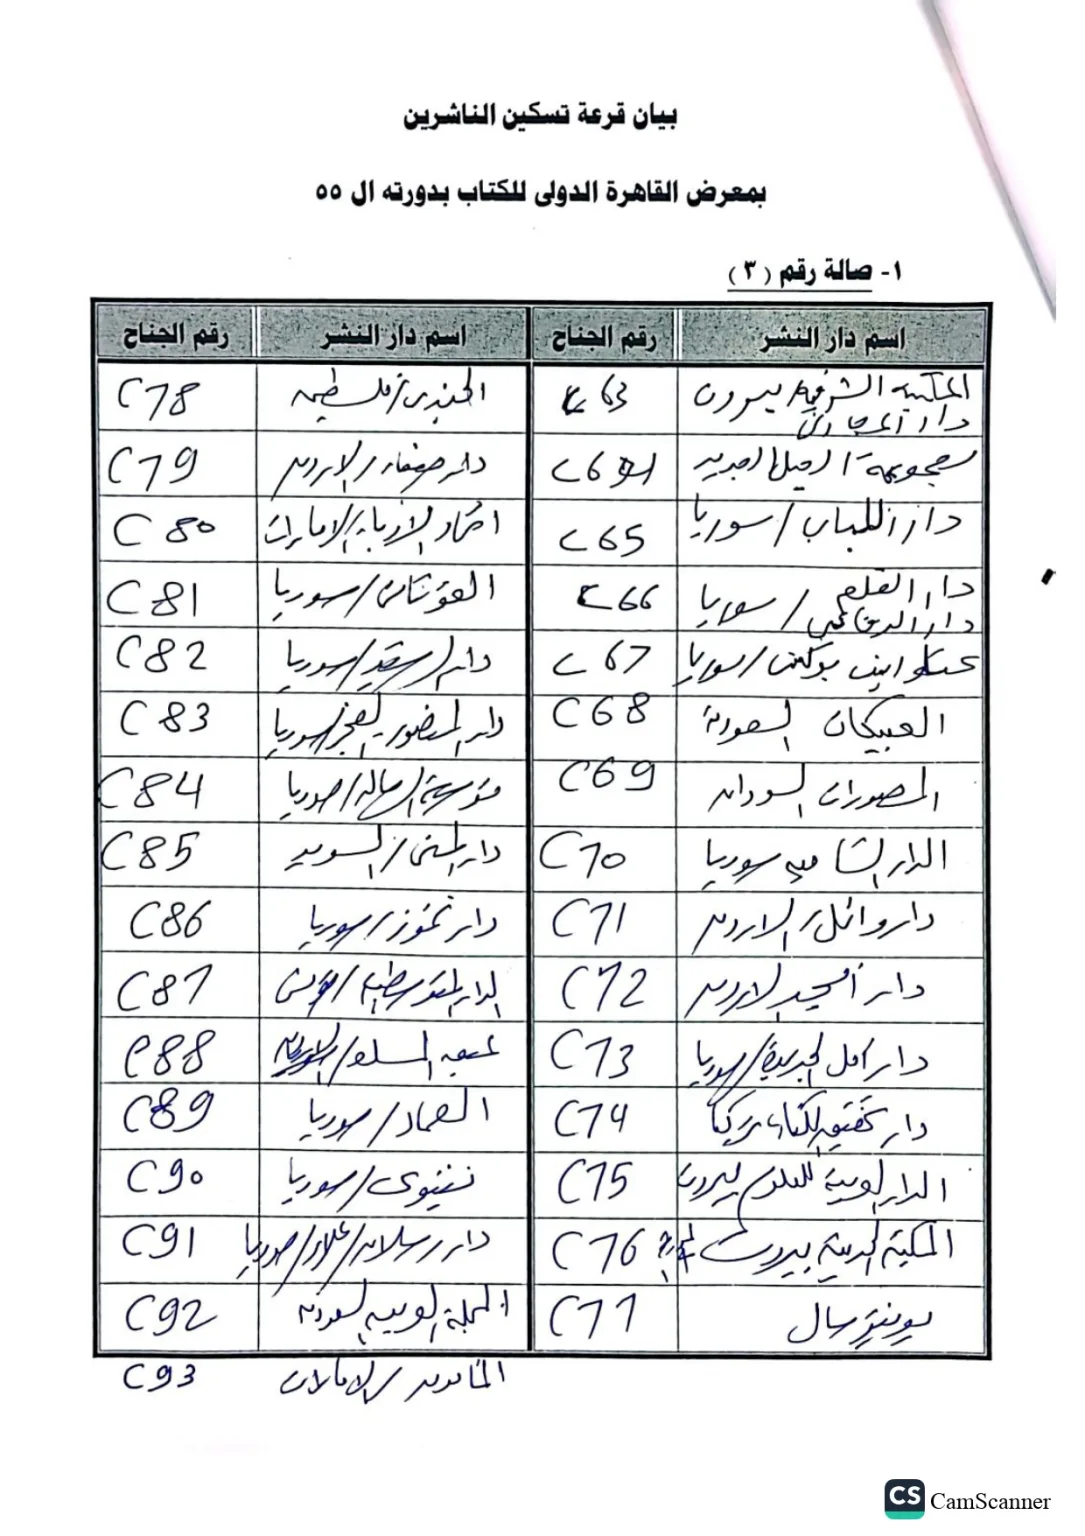 بيان قرعة تسكين الناشرين
بمعرض القاهرة الدولى للكتاب بدورته ال ٥٥
١- صالة رقم (٣)
اسم دار النشر رقم الجناح اسم دار النشر رقم الجناح
المكتبة الشرقية/بيروت C63 الجندى/فلسطين C78
دار
مجموعة الجيل الجديد C64 دار صفاء/الاردن C79
دار اللباب/سوريا C65 اتحاد الادباء/الامارات C80
دار القلم C66 الغوثانى/سوريا C81
دار الرفاعى/سوريا
C67 دار /سوريا C82
العبيكان السعودية C68 دار /سوريا C83
المصورات السودان C69 مؤسسة الرسالة/سوريا C84
الدار الشامية سوريا C70 دار المنى/السويد C85
دار وائل/الاردن C71 دار تموز/سوريا C86
دار امجد الاردن C72 الدار المتوسطية/تونس C87
دار امل الجديدة/سوريا C73 C88
دار تحقيق الكتاب تركيا C74 العماد/سوريا C89
الدار العربية للعلوم بيروت C75 نينوى/سوريا C90
المكتبة الحديثة بيروت C76 دار رسلان/علاء/سوريا C91
يونيفرسال C77 المجلة العربية السعودية C92
/الامارات C93
CS CamScanner